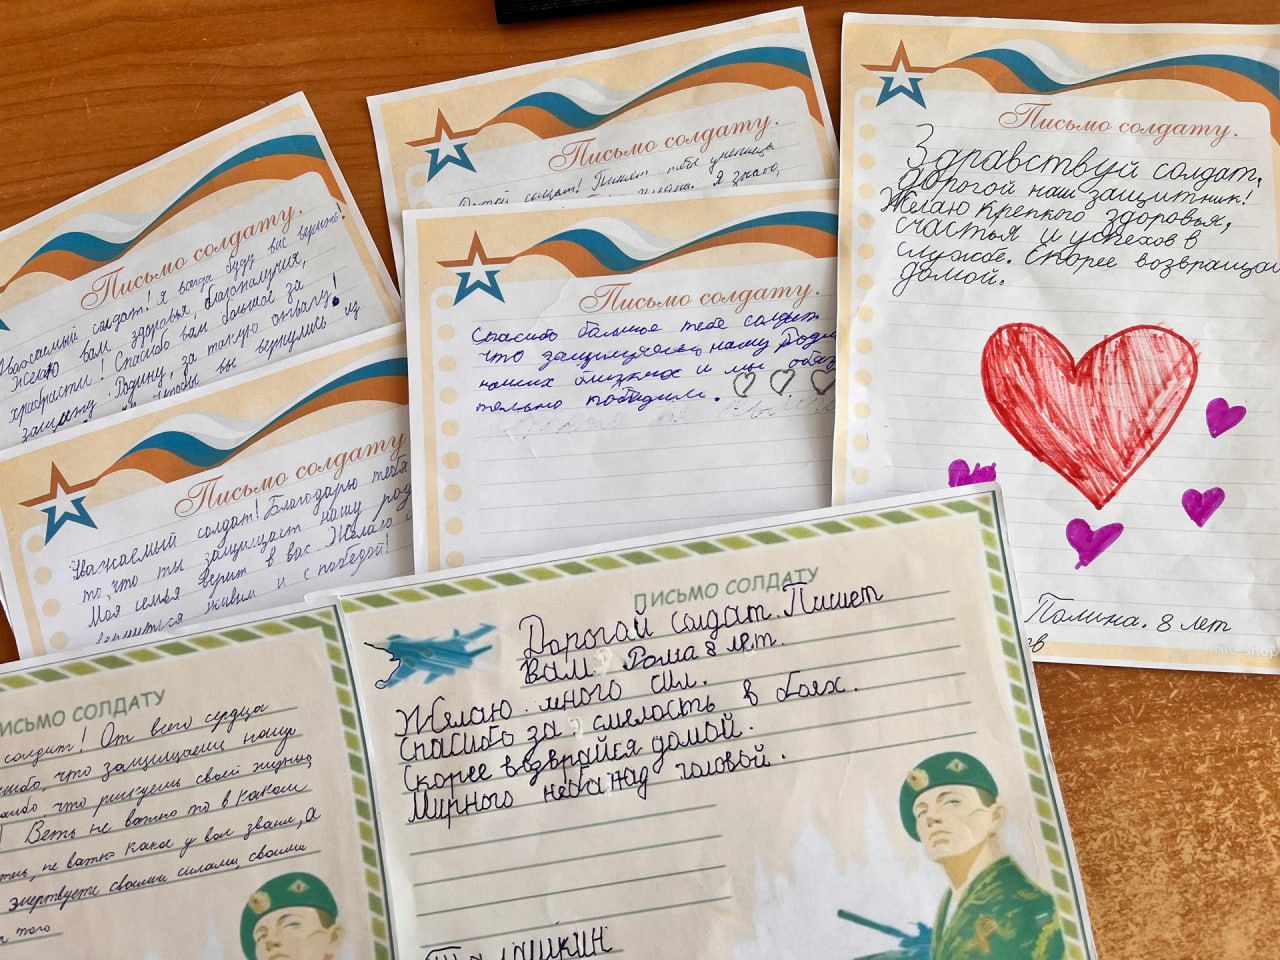 Письмо солдату.
Уважаемый солдат! Я всегда буду вас верить.
Желаю вам здоровья, благополучия,
храбрасти! Спасибо вам большое за
защиту Родину, за такую отвагу!
чтобы вы вернулись из
Письмо солдату
Уважаемый солдат! Благодарю тебя
то, что ты защищает нашу род
Моя семья верит в вас. Желаю
вернуться живым и с победой!
Письмо солдату.
солдат! Пишет тебе ученица
Я знаю,
Письмо солдату.
Спасибо большое тебе солдат
что защищаешь нашу Роди
наших близких и мы обяза
тельно победим.
Письмо солдату.
Здравствуй солдат,
Дорогой наш защитник!
Желаю крепкого здоровья,
счастья и успехов в
службе. Скорее возвращай
домой.
Полина. 8 лет
ПИСЬМО СОЛДАТУ
солдат! От всего сердца
что защищаеш нашу
что рискуешь своей жизнью
Веть не важно то в каком
не важно какое у вас звание, а
жертвуете своими силами, своими
того
ПИСЬМО СОЛДАТУ
Дорогай солдат. Пишет
вам. Рома 8 лет.
Желаю много сил.
Спасибо за смелость в боях.
Скорее возврайся домой.
Мирного неба над головой.